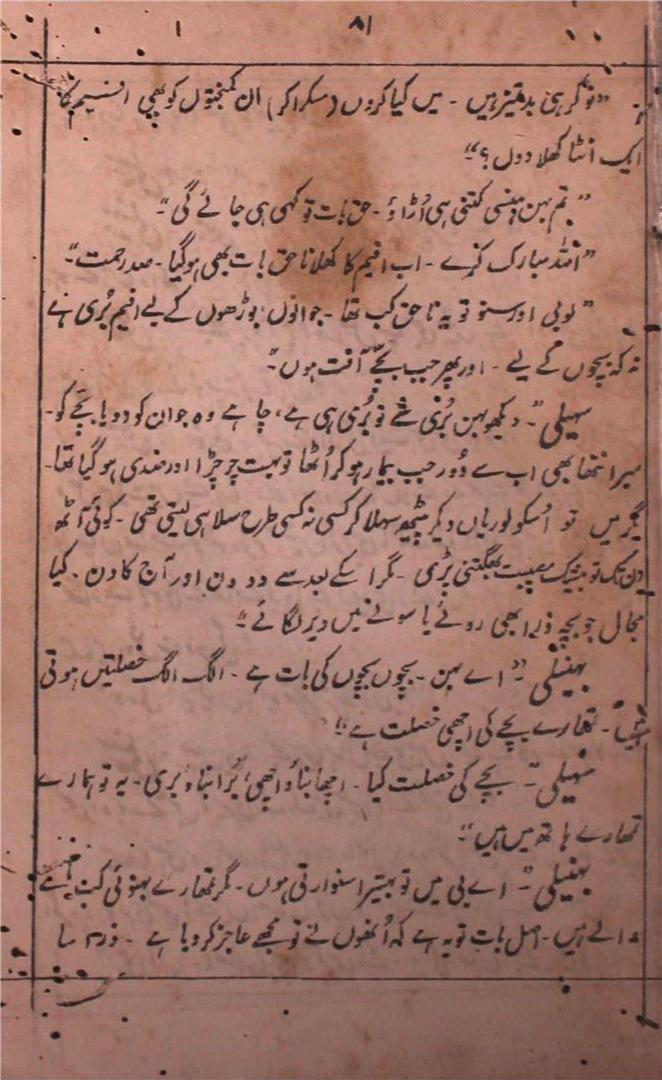 ۸۱
”نوکر ہی بدتمیز ہیں - میں کیا کروں (مسکرا کر) ان کمبختوں کو بھی افیم کا
ایک انٹا کھلا دوں؟“
”تم بہن ہنسی کتنی ہی اُڑاؤ - حق بات تو کہی ہی جائے گی“۔
”اللہ مبارک کرے - اب افیم کا کھلانا حق بات بھی ہوگیا - صد رحمت“۔
”لو بی اور سنو تو یہ ناحق کب تھا - جوانوں بوڑھوں کے لیے افیم بُری ہے
نہ کہ بچوں کے لیے - اور پھر جب بچے آفت ہوں“۔
سہیلی ”- دیکھو بہن بُری شے تو بُری ہی ہے، چاہے وہ جوان کو دو یا بچے کو۔
میرا ننھا بھی اب سے دُور جب بیمار ہو کر اُٹھا تو بہت چڑچڑا اور ضدی ہو گیا تھا۔
مگر میں تو اُسکو لوریاں دیکر پیٹھ سہلا کر کسی نہ کسی طرح سلا ہی لیتی تھی - کوئی آٹھ
دن تک تو بیشک مصیبت بھگتنی پڑی - مگر اس کے بعد سے وہ دن اور آج کا دن - کیا
مجال جو بچہ ذرا بھی رونے یا سونے میں دیر لگائے“۔
بہنیلی ”- اے بہن - بچوں بچوں کی بات ہے - الگ الگ خصلتیں ہوتی
ہیں - تمھارے بچے کی اچھی خصلت ہے“۔
سہیلی ”- بچے کی خصلت کیا - اچھا بناؤ اچھی، بُرا بناؤ بری - یہ تو ہمارے
تمھارے ہاتھ میں ہیں“۔
بہنیلی ”- اے بی میں تو بہتیرا سنوارتی ہوں - مگر تمھارے بہنوئی کب
والے ہیں - اصل بات تو یہ ہے کہ اُنھوں نے تو مجھے عاجز کر دیا ہے - ذرا سا